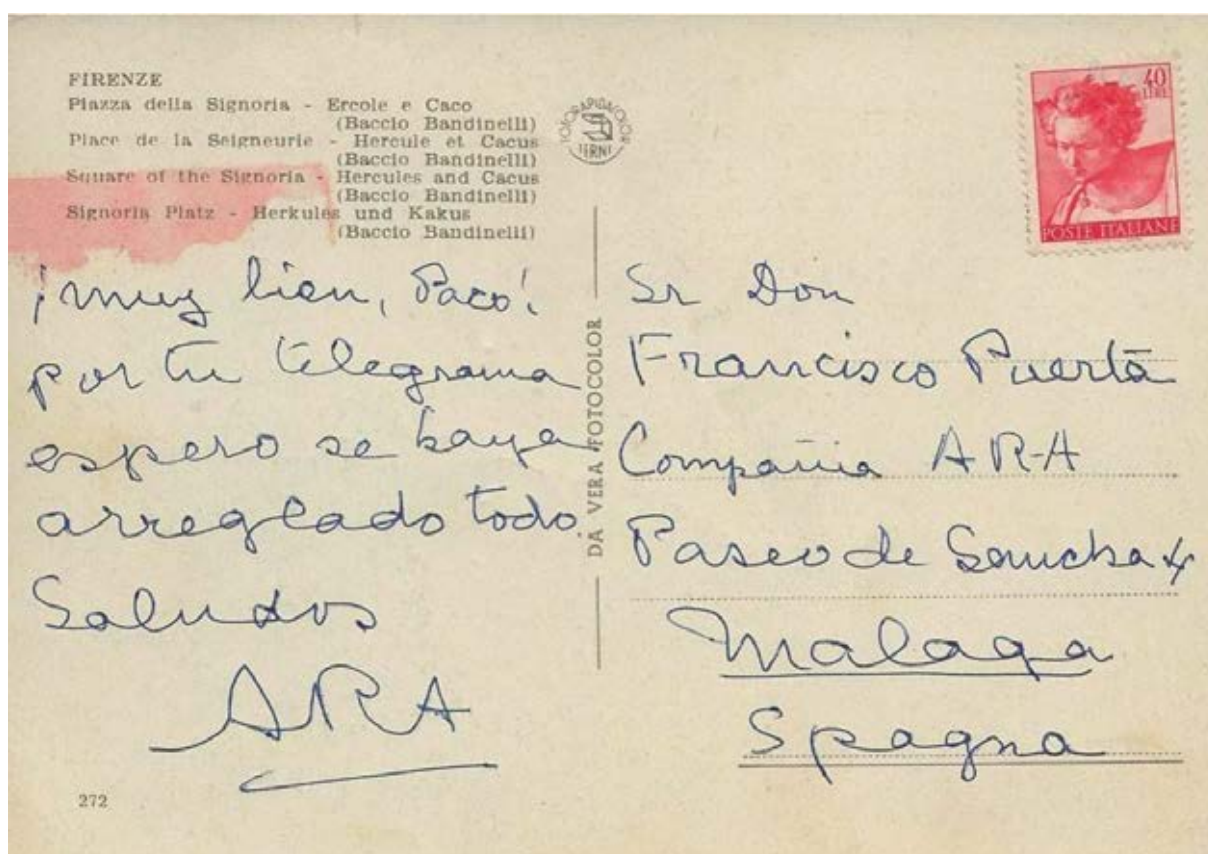 FIRENZE
Piazza della Signoria - Ercole e Caco
(Baccio Bandinelli)
Place de la Seigneurie - Hercule et Cacus
(Baccio Bandinelli)
Square of the Signoria - Hercules and Cacus
(Baccio Bandinelli)
Signoria Platz - Herkules und Kakus
(Baccio Bandinelli)
FOTORAPIDACOLOR
TERNI
40
LIRE
POSTE ITALIANE
¡muy bien, Paco!
por tu telegrama
espero se haya
arreglado todo.
Saludos
ARA
272
DA VERA FOTOCOLOR
Sr Don
Francisco Puerta
Compañia ARA
Paseo de Sancha 4
Malaga
Spagna